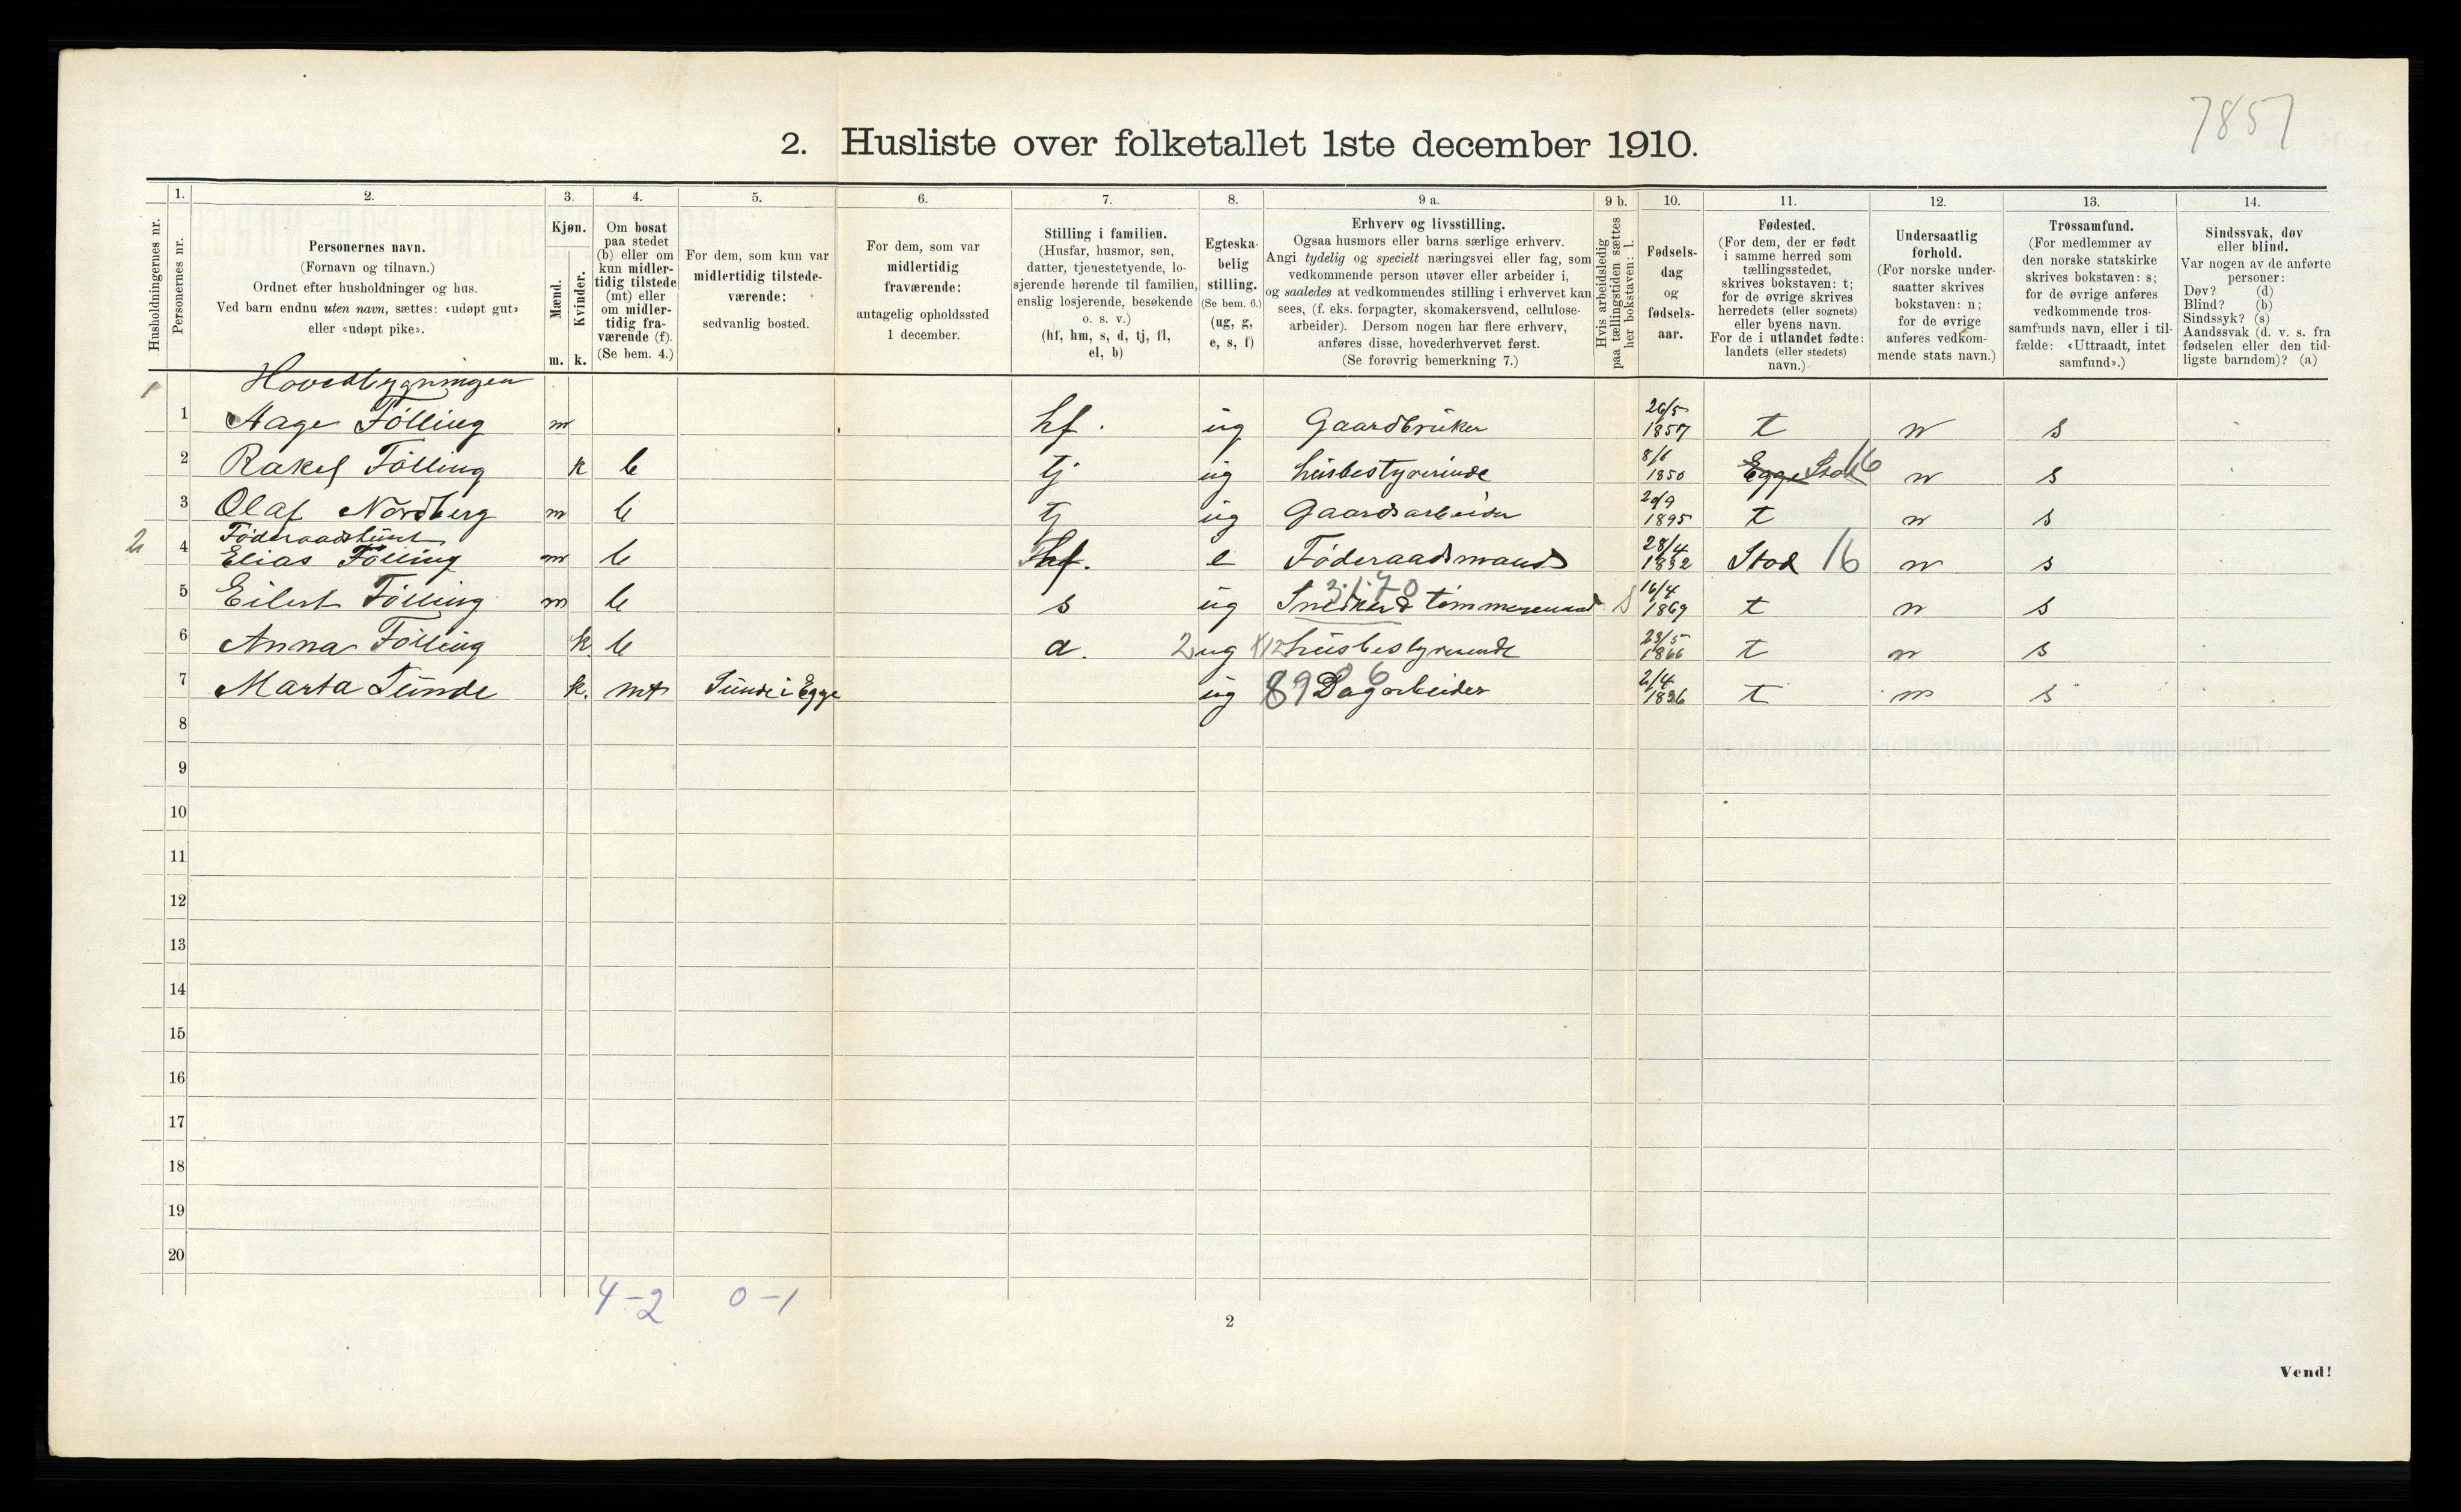 7857
2. Husliste over folketallet 1ste december 1910.
Husholdningernes nr.
1. Personernes nr.
2. Personernes navn. (Fornavn og tilnavn.) Ordnet efter husholdninger og hus. Ved barn endnu uten navn, sættes: «udøpt gut» eller «udøpt pike».
3. Kjøn. Mænd. m. Kvinder. k.
4. Om bosat paa stedet (b) eller om kun midlertidig tilstede (mt) eller om midlertidig fraværende (f). (Se bem. 4.)
5. For dem, som kun var midlertidig tilstedeværende: sedvanlig bosted.
6. For dem, som var midlertidig fraværende: antagelig opholdssted 1 december.
7. Stilling i familien. (Husfar, husmor, søn, datter, tjenestetyende, losjerende hørende til familien, enslig losjerende, besøkende o. s. v.) (hf, hm, s, d, tj, fl, el, b)
8. Egteskabelig stilling. (Se bem. 6.) (ug, g, e, s, f)
9 a. Erhverv og livsstilling. Ogsaa husmors eller barns særlige erhverv. Angi tydelig og specielt næringsvei eller fag, som vedkommende person utøver eller arbeider i, og saaledes at vedkommendes stilling i erhvervet kan sees, (f. eks. forpagter, skomakersvend, cellulosearbeider). Dersom nogen har flere erhverv, anføres disse, hovederhvervet først. (Se forøvrig bemerkning 7.)
9 b. Hvis arbeidsledig paa tællingstiden sættes her bokstaven: l.
10. Fødselsdag og fødselsaar.
11. Fødested. (For dem, der er født i samme herred som tællingsstedet, skrives bokstaven: t; for de øvrige skrives herredets (eller sognets) eller byens navn. For de i utlandet fødte: landets (eller stedets) navn.)
12. Undersaatlig forhold. (For norske undersaatter skrives bokstaven: n; for de øvrige anføres vedkommende stats navn.)
13. Trossamfund. (For medlemmer av den norske statskirke skrives bokstaven: s; for de øvrige anføres vedkommende trossamfunds navn, eller i tilfælde: «Uttraadt, intet samfund».)
14. Sindssvak, døv eller blind. Var nogen av de anførte personer: Døv? (d) Blind? (b) Sindssyk? (s) Aandssvak (d. v. s. fra fødselen eller den tidligste barndom)? (a)
Hovedbygningen
1 1 Aage Følling m hf. ug Gaardbruker 26/5 1857 t n s
2 Rakel Følling k b tj ug husbestyrerinde 8/6 1850 Egge Stod 16 n s
3 Olaf Nordberg m b tj ug Gaardsarbeider 20/9 1895 t n s
Føderaadsbunt
2 4 Elias Følling m b hf. e Føderaadsmand 28/4 1832 Stod 16 n s
5 Eilert Følling m b s ug 3170 Snedker & tømmermand S 16/4 1869 t n s
6 Anna Følling k. b d. 2 ug X12 husbestyrerinde 23/5 1866 t n s
7 Marta Sunde k. mt Sunde i Egge ug 8906 Dagarbeider 2/4 1836 t n s
8
9
10
11
12
13
14
15
16
17
18
19
20
4-2 0-1
2
Vend!